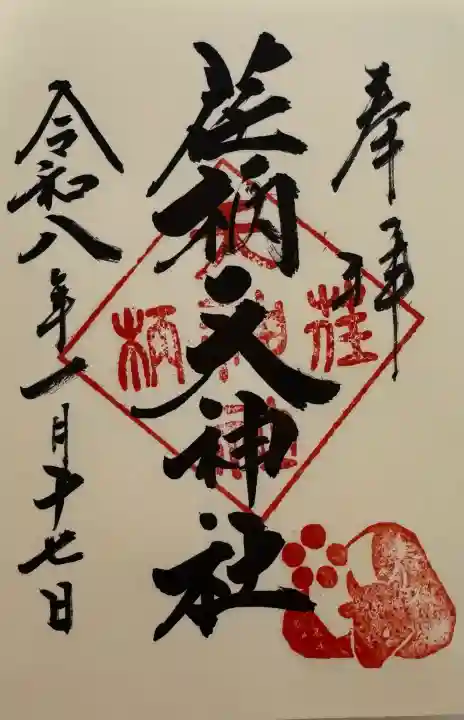 奉拝
荏柄天神社
令和八年一月廿七日
荏
柄